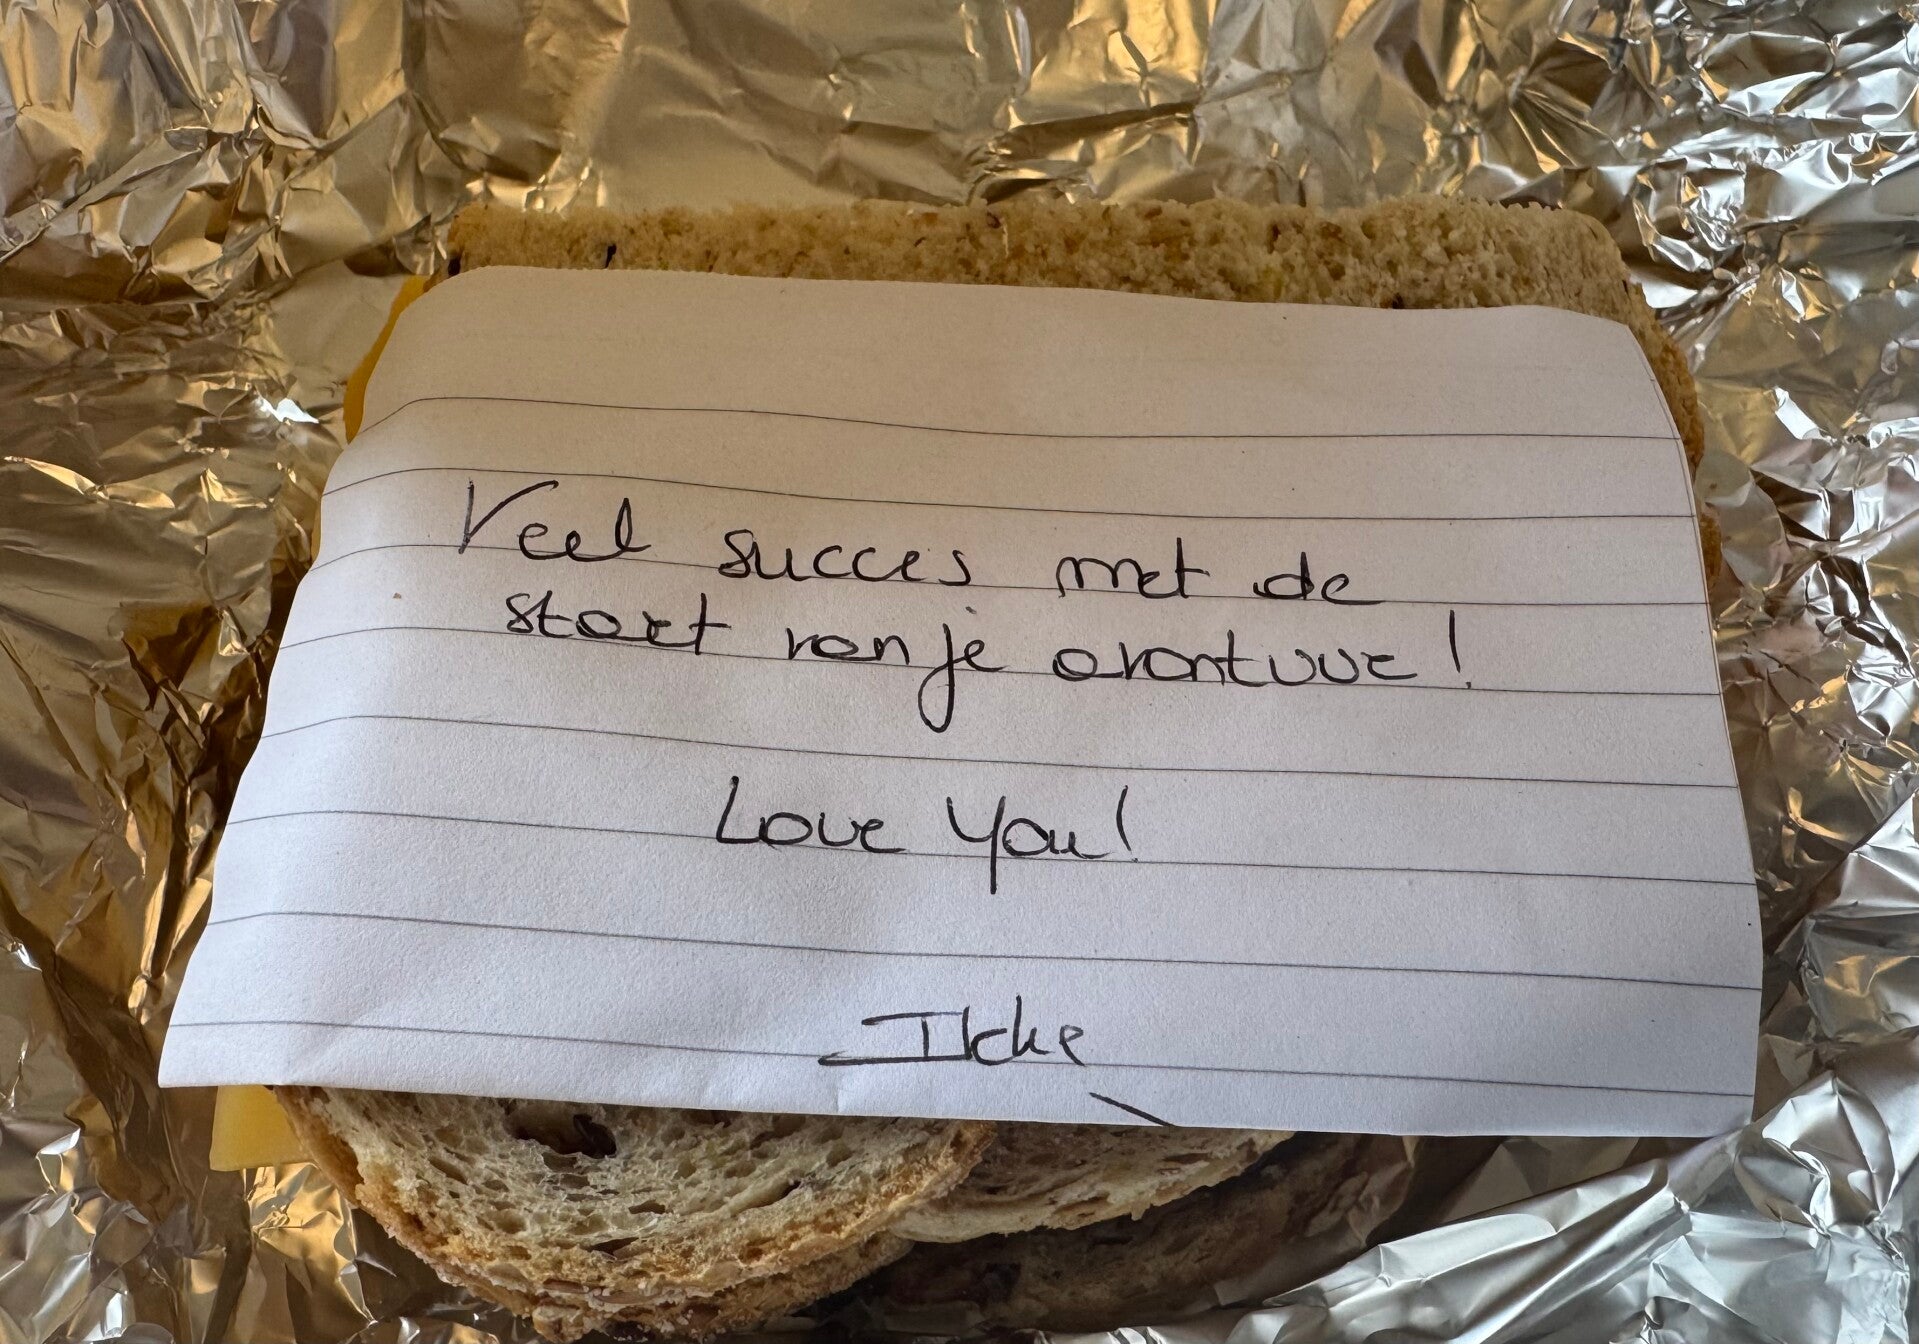 Veel succes met de
start van je avontuur!
Love You!
Ikke